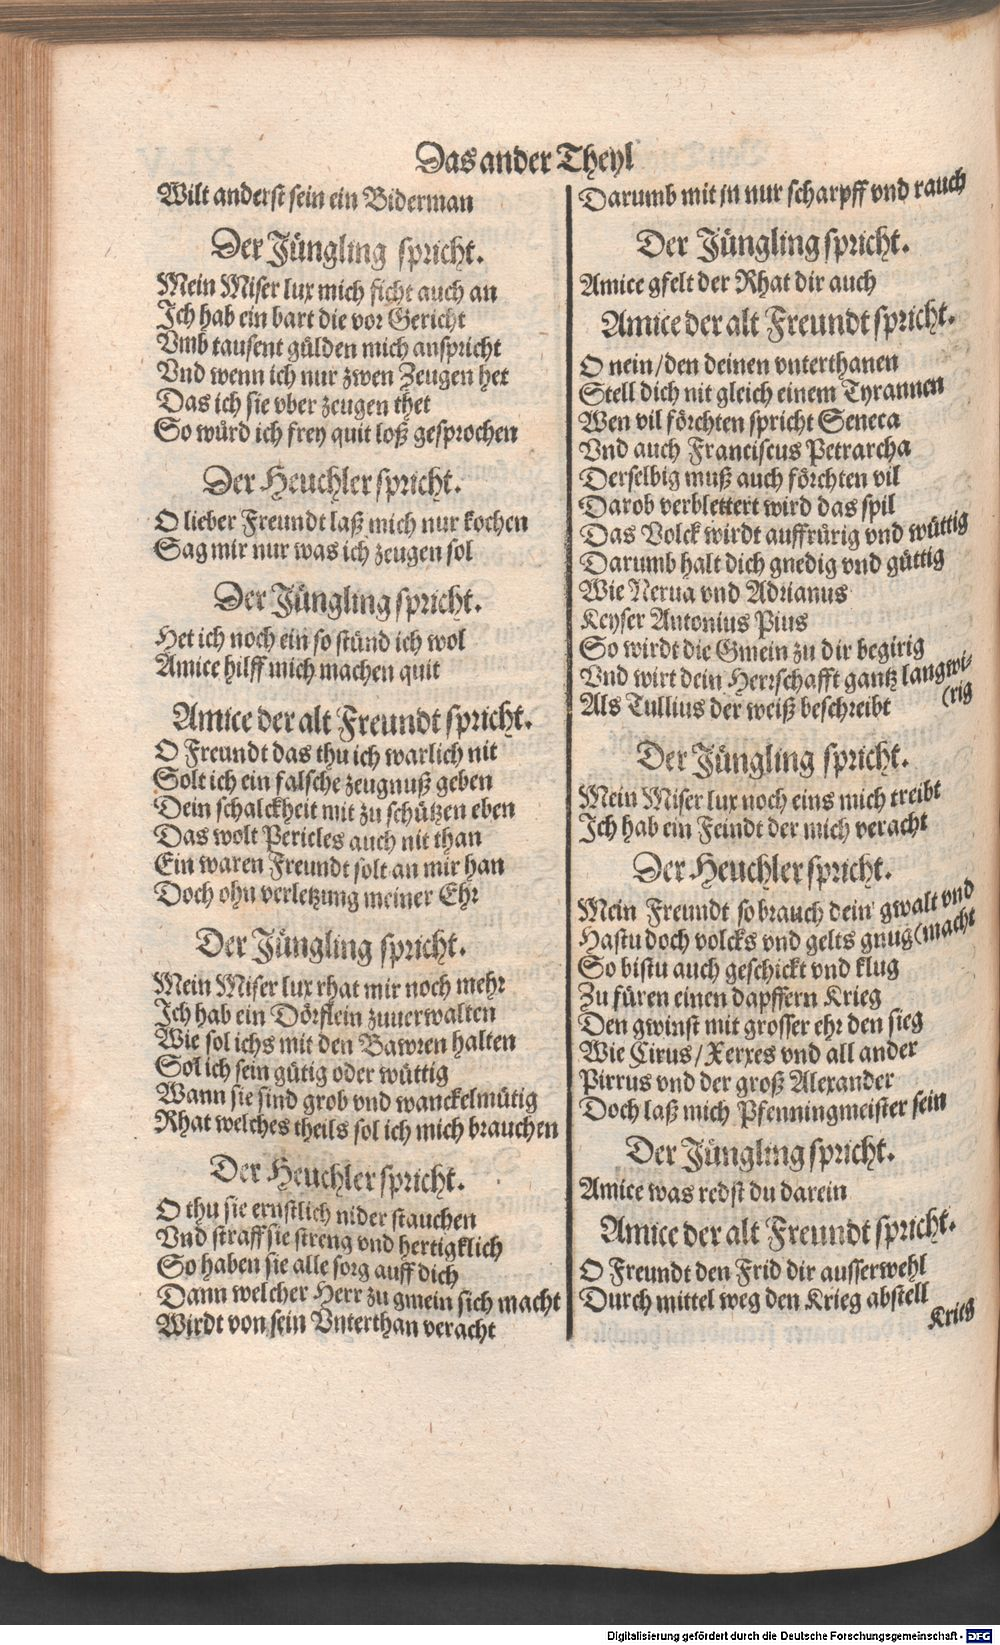 Das ander Theyl
Wilt anderst sein ein Biderman
Der Jüngling spricht.
Mein Miser lux mich ficht auch an
Ich hab ein bart die vor Gericht
Vmb tausent gülden mich anspricht
Vnd wenn ich nur zwen Zeugen het
Das ich sie vber zeugen thet
So würd ich frey quit loß gesprochen
Der Heuchler spricht.
O lieber Freundt laß mich nur kochen
Sag mir nur was ich zeugen sol
Der Jüngling spricht.
Het ich noch ein so stünd ich wol
Amice hilff mich machen quit
Amice der alt Freundt spricht.
O Freundt das thu ich warlich nit
Solt ich ein falsche zeugnuß geben
Dein schalckheit mit zu schützen eben
Das wolt Pericles auch nit than
Ein waren Freundt solt an mir han
Doch ohn verletzung meiner Ehr
Der Jüngling spricht.
Mein Miser lux rhat mir noch mehr
Ich hab ein Dörflein zuuerwalten
Wie sol ichs mit den Bawren halten
Sol ich sein gütig oder wüttig
Wann sie sind grob vnd wanckelmütig
Rhat welches theils sol ich mich brauchen
Der Heuchler spricht.
O thu sie ernstlich nider stauchen
Vnd straff sie streng vnd hertigklich
So haben sie alle sorg auff dich
Dann welcher Herr zu gmein sich macht
Wirdt von sein Vnterthan veracht
Darumb mit jn nur scharpff vnd rauch
Der Jüngling spricht.
Amice gfelt der Rhat dir auch
Amice der alt Freundt spricht.
O nein/den deinen vnterthanen
Stell dich nit gleich einem Tyrannen
Wen vil förchten spricht Seneca
Vnd auch Franciscus Petrarcha
Derselbig muß auch förchten vil
Darob verblettert wird das spil
Das Volck wirdt auffrürig vnd wüttig
Darumb halt dich gnedig vnd güttig
Wie Nerua vnd Adrianus
Keyser Antonius Pius
So wirdt die Gmein zu dir begirig
Vnd wirt dein Herrschafft gantz langwi-
(rig
Als Tullius der weiß beschreibt
Der Jüngling spricht.
Mein Miser lux noch eins mich treibt
Ich hab ein Feindt der mich veracht
Der Heuchler spricht.
Mein Freundt so brauch dein gwalt vnd
Hastu doch volcks vnd gelts gnug (macht
So bistu auch geschickt vnd klug
Zu füren einen dapffern Krieg
Den gwinst mit grosser ehr den sieg
Wie Cirus/Xerxes vnd all ander
Pirrus vnd der groß Alexander
Doch laß mich Pfenningmeister sein
Der Jüngling spricht.
Amice was redst du darein
Amice der alt Freundt spricht.
O Freundt den Frid dir ausserwehl
Durch mittel weg den Krieg abstell
Krieg
Digitalisierung gefördert durch die Deutsche Forschungsgemeinschaft - DFG